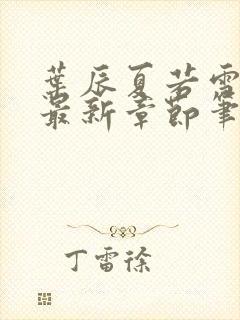 葉辰夏若雪
最新章節筆
丁雷徐